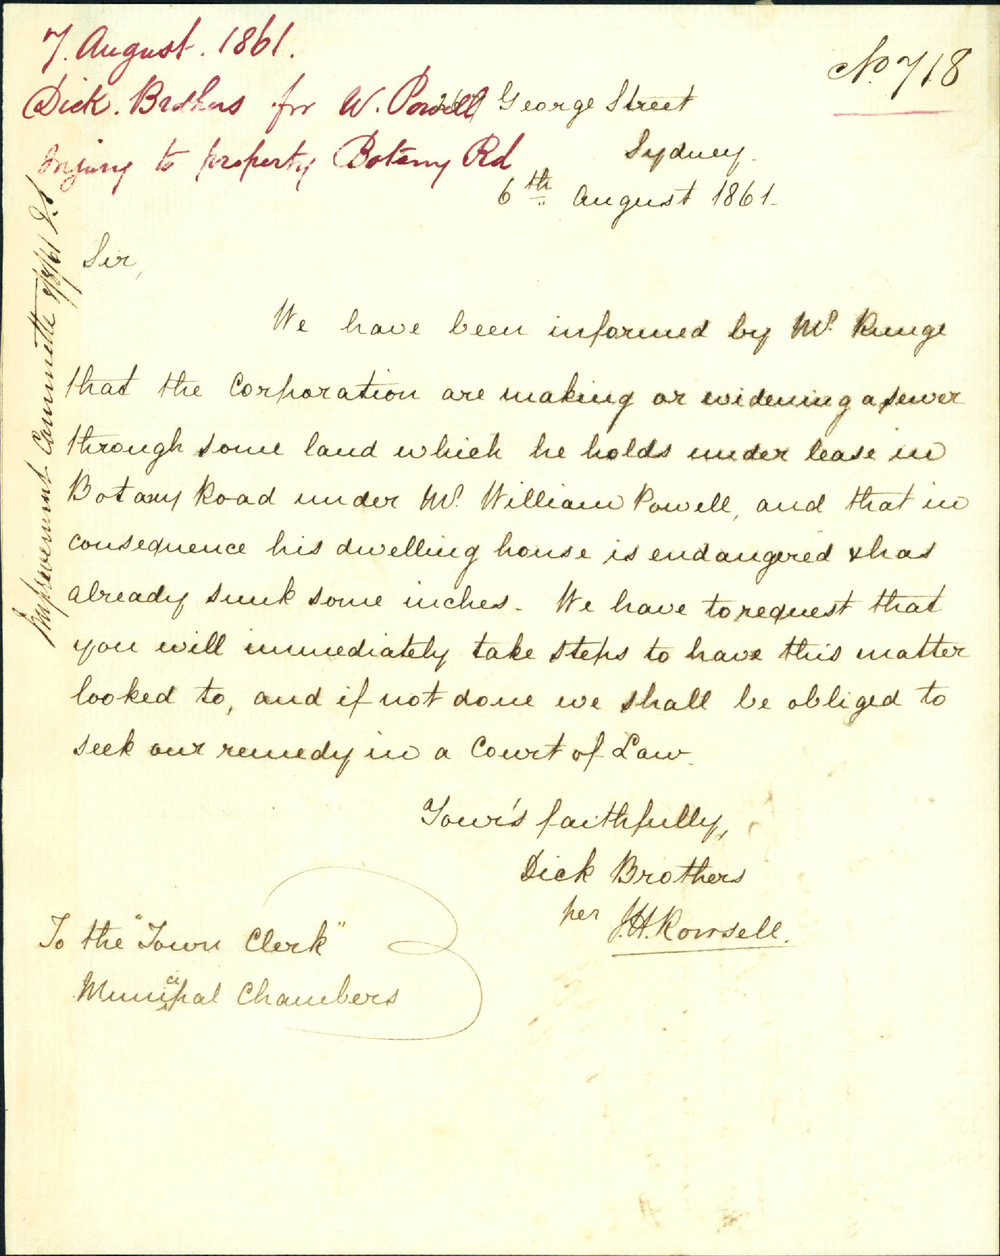 7. August. 1861.
Dick. Brothers for W. Powell
Injury to property Botany Rd
No. 718
George Street
Sydney.
6th August 1861.
Improvement Committee 9/8/61
Sir,
We have been informed by Mr. Runge
that the Corporation are making or widening a sewer
through some land which he holds under lease in
Botany Road under Mr. William Powell, and that in
consequence his dwelling house is endangered & has
already sunk some inches. We have to request that
you will immediately take steps to have this matter
looked to, and if not done we shall be obliged to
seek our remedy in a Court of Law.
Your's faithfully,
Dick Brothers
per J.H. Rowsell.
To the "Town Clerk"
Municipal Chambers